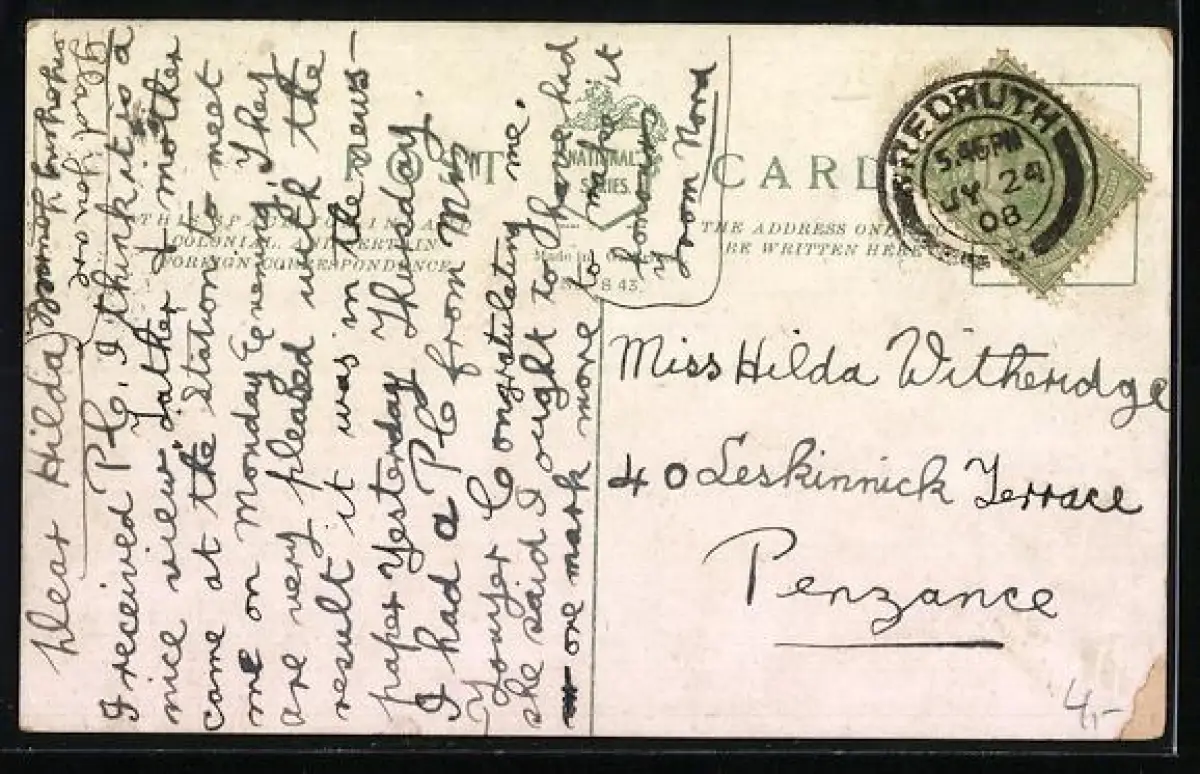 Dear Hilda
I received P.C. I think it is a
nice view. Father & mother
came at the Station to meet
me on Monday Evening. They
are very pleased with the
result it was in the news-
paper Yesterday Thursday.
I had a P C from Miss
Congratulating me.
she said I ought to have had
one mark more to make it
Honours
from Nora
glad your
POST CARD
NATIONAL
SERIES
THIS SPACE
COLONIAL AND CERTAIN
FOREIGN CORRESPONDENCE
Made in
THE ADDRESS ONLY TO
BE WRITTEN HERE
REDRUTH
5.45PM
JY 24
08
Miss Hilda Witheridge
40 Leskinnick Terrace
Penzance
4,-